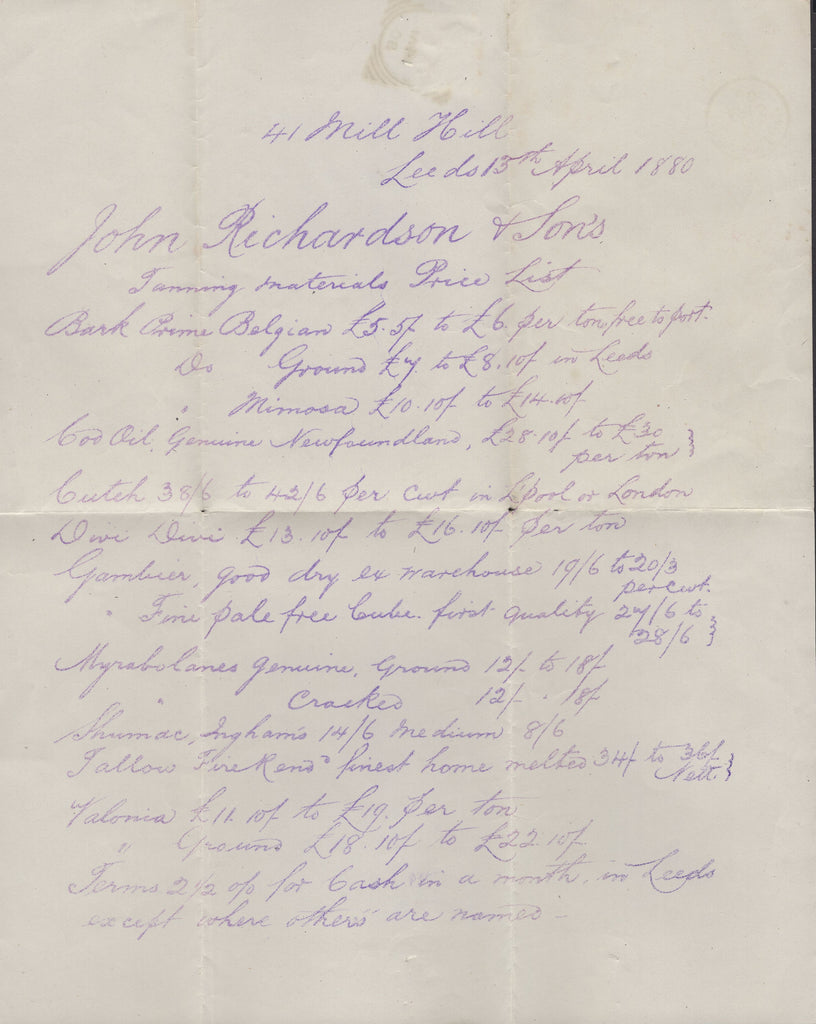 41 Mill Hill
Leeds 13th April 1880
John Richardson & Sons
Tanning materials Price List
Bark Prime Belgian £5.5/ to £6. per ton free to port.
Do Ground £7. to £8.10/ in Leeds
" Mimosa £10.10/ to £14.10/
Cod Oil, Genuine Newfoundland, £28.10/ to £30 }
per ton
Cutch 38/6 to 42/6 per cwt in L'pool or London
Divi Divi £13.10/ to £16.10/ per ton
Gambier, good dry ex warehouse 19/6 to 20/3
per cwt.
" Fine pale free Cube. first quality 27/6 to }
28/6
Myrabolanes genuine, Ground 12/- to 18/-
" Cracked 12/- " 18/-
Shumac, Ingham's 14/6 medium 8/6
Tallow Fire Rend'd finest home melted 34/- to 36/- }
Nett
Valonia £11.10/ to £19. per ton
" Ground £18.10/ to £22.10/
Terms 2 1/2 o/o for Cash in a month, in Leeds
except where others are named -